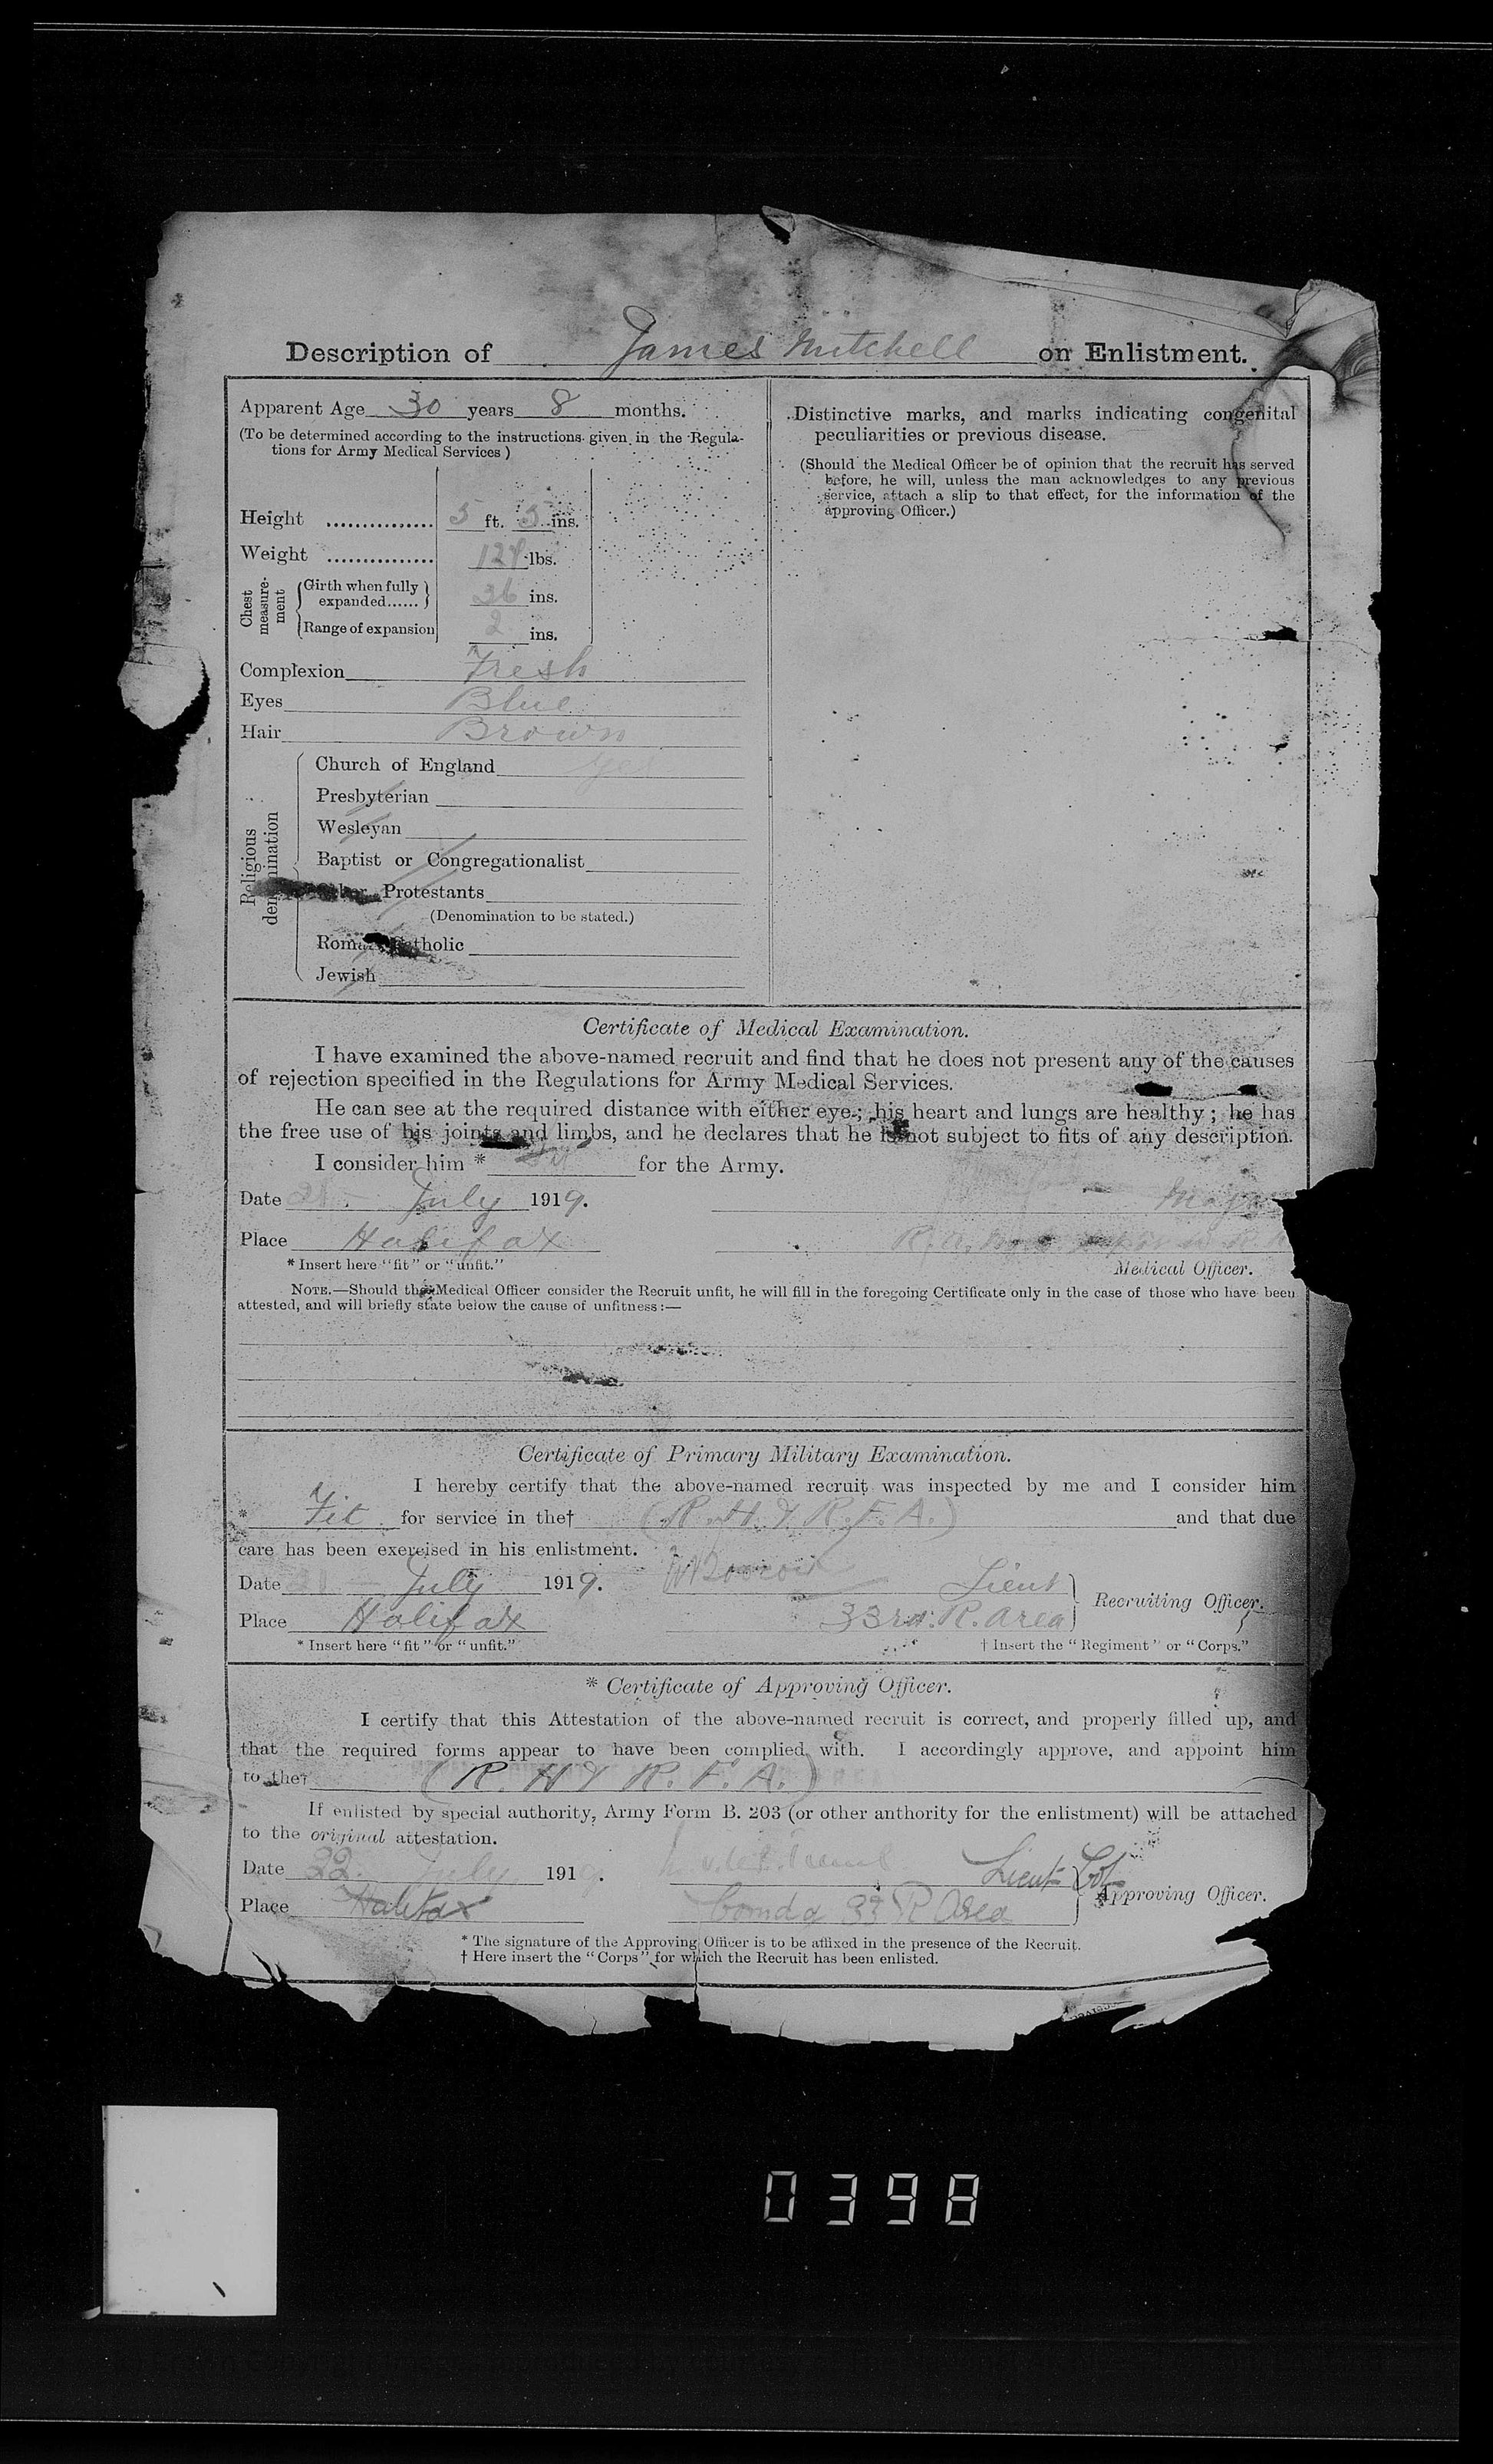 Description of James Mitchell on Enlistment.
Apparent Age 30 years 8 months.
(To be determined according to the instructions given in the Regula-
tions for Army Medical Services)
Height ............... 5 ft. 5 ins.
Weight ............... 124 lbs.
Chest measure-ment
Girth when fully expanded...... 36 ins.
Range of expansion 2 ins.
Complexion Fresh
Eyes Blue
Hair Brown
Religious denomination
Church of England Yes
Presbyterian
Wesleyan
Baptist or Congregationalist
Other Protestants
(Denomination to be stated.)
Roman Catholic
Jewish
Distinctive marks, and marks indicating congenital
peculiarities or previous disease.
(Should the Medical Officer be of opinion that the recruit has served
before, he will, unless the man acknowledges to any previous
service, attach a slip to that effect, for the information of the
approving Officer.)
Certificate of Medical Examination.
I have examined the above-named recruit and find that he does not present any of the causes
of rejection specified in the Regulations for Army Medical Services.
He can see at the required distance with either eye; his heart and lungs are healthy; he has
the free use of his joints and limbs, and he declares that he is not subject to fits of any description.
I consider him * Fit for the Army.
Date July 1919. Major
Place Halifax
* Insert here "fit" or "unfit." Medical Officer.
NOTE.—Should the Medical Officer consider the Recruit unfit, he will fill in the foregoing Certificate only in the case of those who have been
attested, and will briefly state below the cause of unfitness:—
Certificate of Primary Military Examination.
I hereby certify that the above-named recruit was inspected by me and I consider him
* Fit for service in the† (R. H. & R. F. A.) and that due
care has been exercised in his enlistment.
Date July 1919. Lieut
Recruiting Officer.
Place Halifax 33rd. R. Area
* Insert here "fit" or "unfit." † Insert the "Regiment" or "Corps."
* Certificate of Approving Officer.
I certify that this Attestation of the above-named recruit is correct, and properly filled up, and
that the required forms appear to have been complied with. I accordingly approve, and appoint him
to the† (R. H & R. F. A.)
If enlisted by special authority, Army Form B. 203 (or other anthority for the enlistment) will be attached
to the original attestation.
Date 22. July 1919. Lieut Col
Approving Officer.
Place Halifax Comdg 33 R Area
* The signature of the Approving Officer is to be affixed in the presence of the Recruit.
† Here insert the "Corps" for which the Recruit has been enlisted.
0398